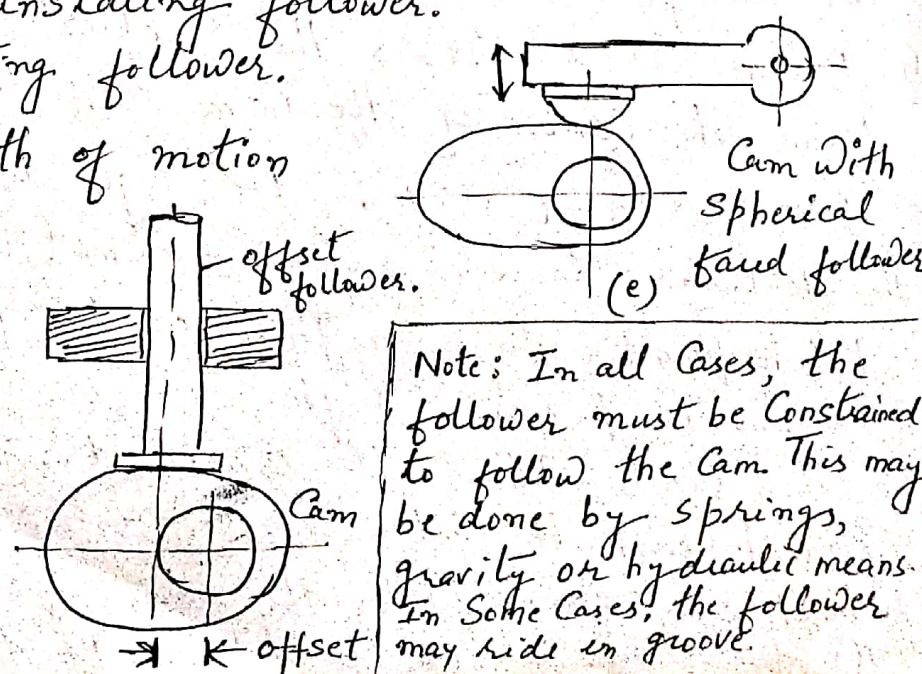 follower.
follower.
of motion
offset
follower.
Cam With
Spherical
faced follower
(e)
Cam
offset
Note: In all Cases, the
follower must be Constrained
to follow the Cam. This may
be done by springs,
gravity or hydraulic means.
In Some Cases, the follower
may ride in groove.